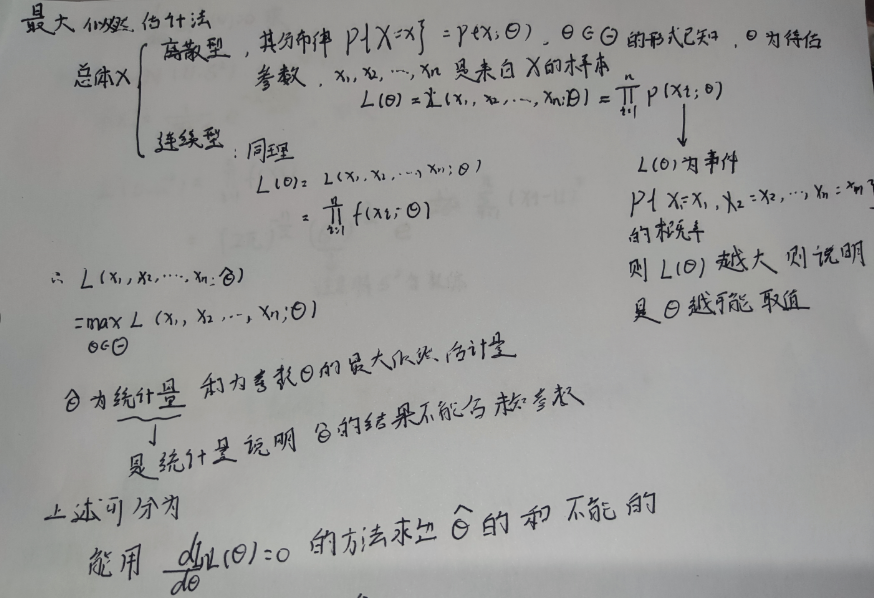 最大似然估计法
总体X
离散型，其分布律 P{X=x} = P(x;θ)，θ∈Θ 的形式已知，θ为待估
参数，x₁,x₂,…,xₙ 是来自X的样本
L(θ) = L(x₁,x₂,…,xₙ;θ) = ∏ᵢ₌₁ⁿ P(xᵢ;θ)
连续型：同理
L(θ) = L(x₁,x₂,…,xₙ;θ)
= ∏ᵢ₌₁ⁿ f(xᵢ;θ)
L(θ)为事件
P{X₁=x₁,X₂=x₂,…,Xₙ=xₙ}
的概率
则 L(θ) 越大 则说明
是θ越可能取值
∴ L(x₁,x₂,…,xₙ;θ̂)
= max L(x₁,x₂,…,xₙ;θ)
θ∈Θ
θ̂ 为统计量 称为参数θ的最大似然估计量
↓
是统计量说明 θ̂的结果不能含未知参数
上述可分为
能用 dlnL(θ)/dθ = 0 的方法求出 θ̂ 的 和 不能的